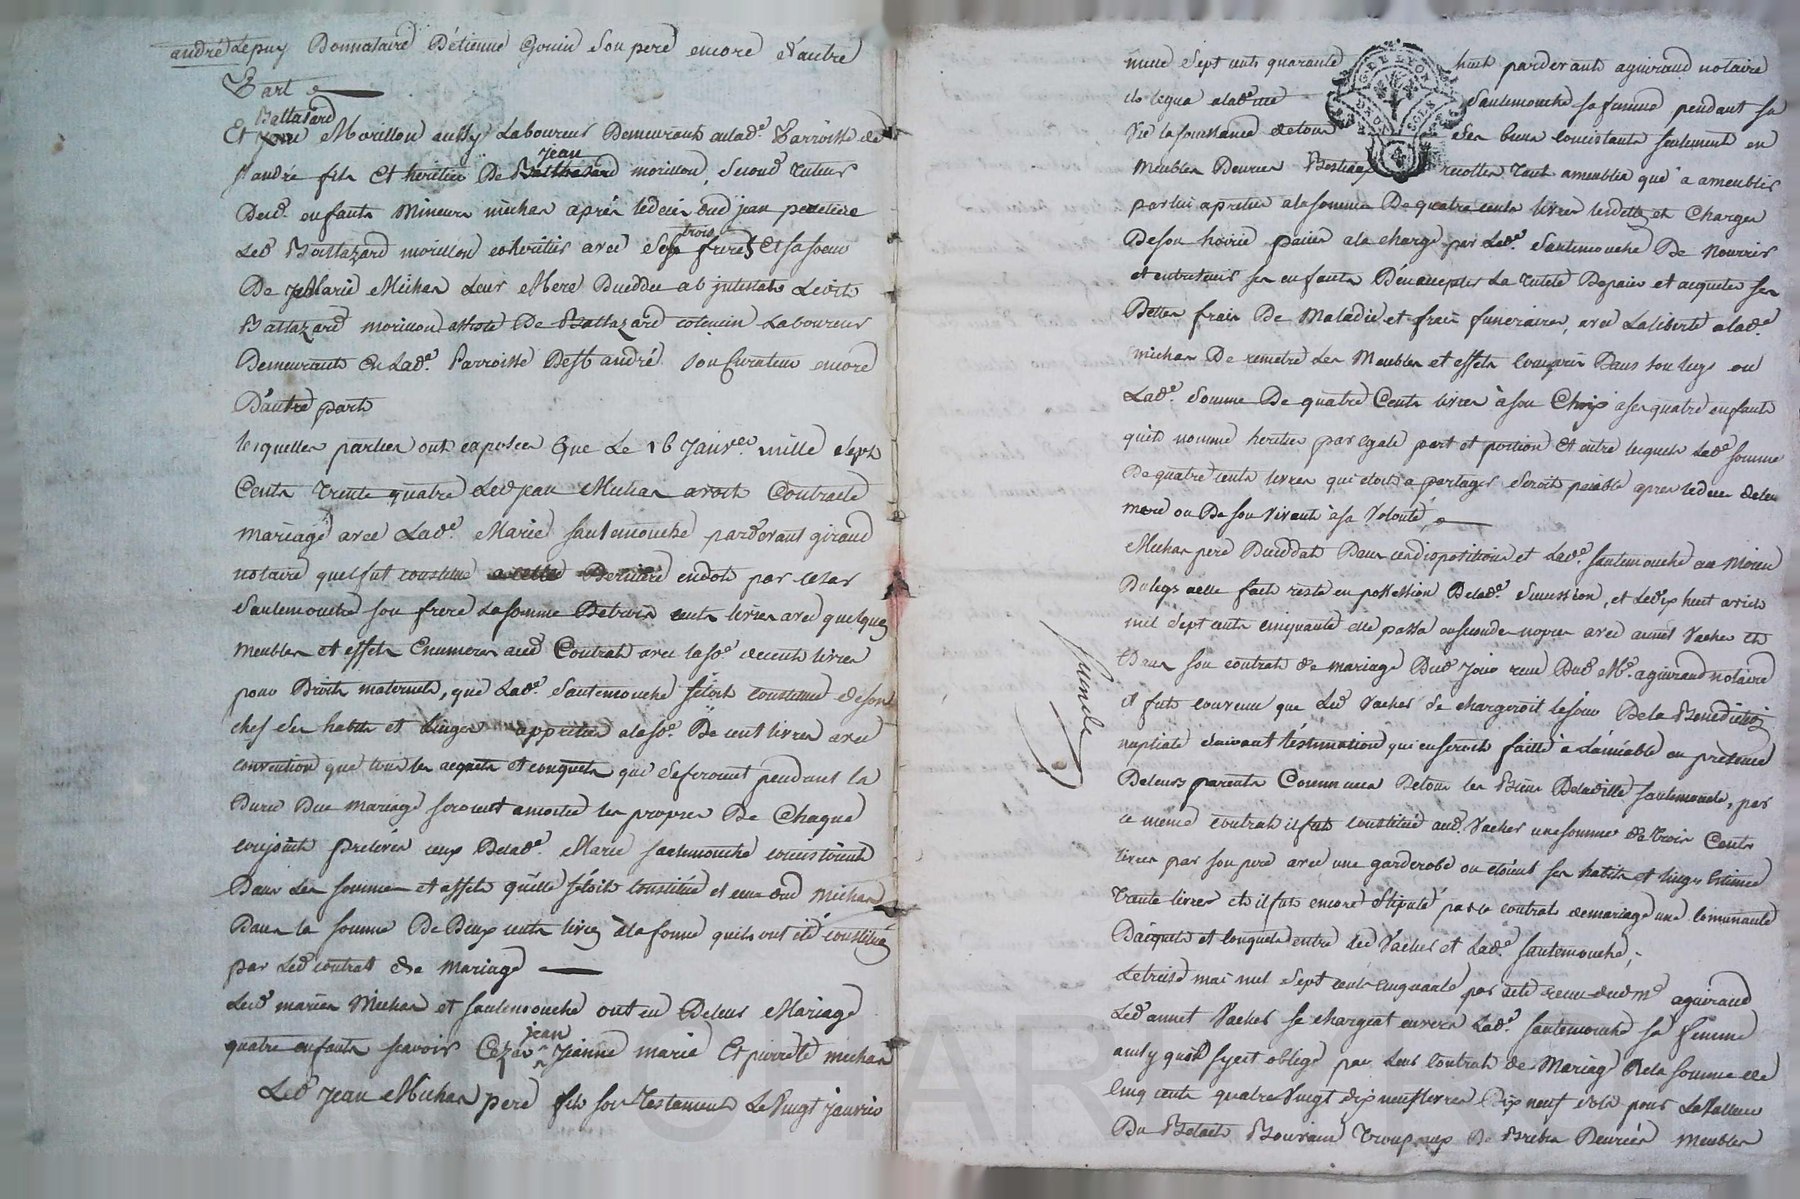 andré Lepuy Donnataire D'étienne Gouin Son pere encore d'autre
Part
Baltazard
Et Morillon aussy Laboureur Demeurant alad.e Parroisse de
jean
St andré fils Et heritier De Balthazard morillon, Second Tuteur
Desd. enfants Mineurs michan après ledeces dud jean
trois
Led Baltazard morillon coheritier avec Ses freres Et Sa soeur
De Marie Michan Leur Mere Decedee ab intestat Ledit
Baltazard morillon assisté De Baltazard Laboureur
Demeurant En Lad.e Parroisse De St andré Son Curateur encore
D'autre part
lesquelles parties ont exposées Que Le 16 Janv.er mille Sept
Cents Trente quatre Led jean Michan avoit Contracté
mariage avec Lad.e Marie Sautemouche pardevant giraud
notaire quel fut constitué a cette Derniere en dot par cesar
Sautemouche son frere La somme De trois cents livres avec quelques
Meubles et effets Enumeres aud Contrat avec la so.e de cent livres
pour Droits maternels, que Lad.e Sautemouche s'étoit constitué de son
chef Ses habits et Linges appretiés a la so.e De cent livres avec
convention que tous les acquets et conquets qui se feroient pendant la
Duree Du mariage seroient les propres De Chaque
conjoint prelevés ceux De lad.e Marie Sautemouche concistoient
Dans Les sommes et effets qu'elle s'étoit Constituée et ceux dud Michan
Dans la somme De Deux cents livres à la forme quils ont été constitués
par Led contrat De mariage
Led mariés Michan et Sautemouche ont eu De leur Mariage
jean
quatre enfants scavoir Cezar Jeanne marie Et pierrette michan
Led Jean Michan pere fit son Testament Le Vingt janvier
mille Sept cents quarante huit pardevant aguiraud notaire
il legua a lad.e Sautemouche sa femme pendant sa
Vie la jouissance de tous Ses biens concistants seulement en
Meubles Denrées Bestiaux recoltes Tant ameublies que a ameublir
par lui apretiés a la somme De quatre cents livres les dettes et Charges
De son hoirie paiées a la charge par Lad.e Sautemouche De Nourrir
et entretenir ses enfants D'en accepter La tutele De paier et acquiter ses
Dettes frais De Maladie et frais funeraires, avec La liberté a lad.e
michan De remetre Les Meubles et effets Compris Dans son legs ou
Lad.e Somme De quatre Cents livres à son Choix a ses quatre enfants
qu'il nomme heritier par egale part et portion Et entre lesquels Lad.e somme
De quatre cents livres qui etoit a partager Seroit paiable apres le deces de leur
mere ou De son Vivant à sa Volonté,
Michan pere Deceddat Dans ces dispositions et Lad.e Sautemouche au Moien
Du legs a elle fait resta en possession De lad.e Succession, et Le dix huit avril
mil Sept cents cinquante elle passa en secondes nopces avec annet Vacher Et
Dans son contrat de mariage Dud jour reçu Dud M.e aguiraud notaire
il fut convenu que Led Vacher se chargeroit le jour De la Benediction
nuptiale Suivant l'estimation qui en seroit faitte à l'amiable en presence
De leurs parents Communs De tous les Biens De lad.e Sautemouche, par
ce meme contrat il fut constitué aud. Vacher une somme de trois Cents
livres par son pere avec une garderobe ou étoient ses habits et linges Estimée
Trente livres et il fut encore stipulé par le contrat de mariage une Comunauté
D'acquets et Conquets entre Led Vacher et Lad.e Sautemouche,
Le treise mai mil Sept cents cinquante par acte recu dud m.e aguiraud
Led annet Vacher se chargeat envers Lad.e Sautemouche sa femme
ainsy quil s'y est obligé par Leur Contrat de Mariage De la somme de
Cinq cents quatre Vingt dix neuf livres Dix neuf sols pour La Valleur
Du Betail Bovain Troupeaux De Brebis Denrées Meubles